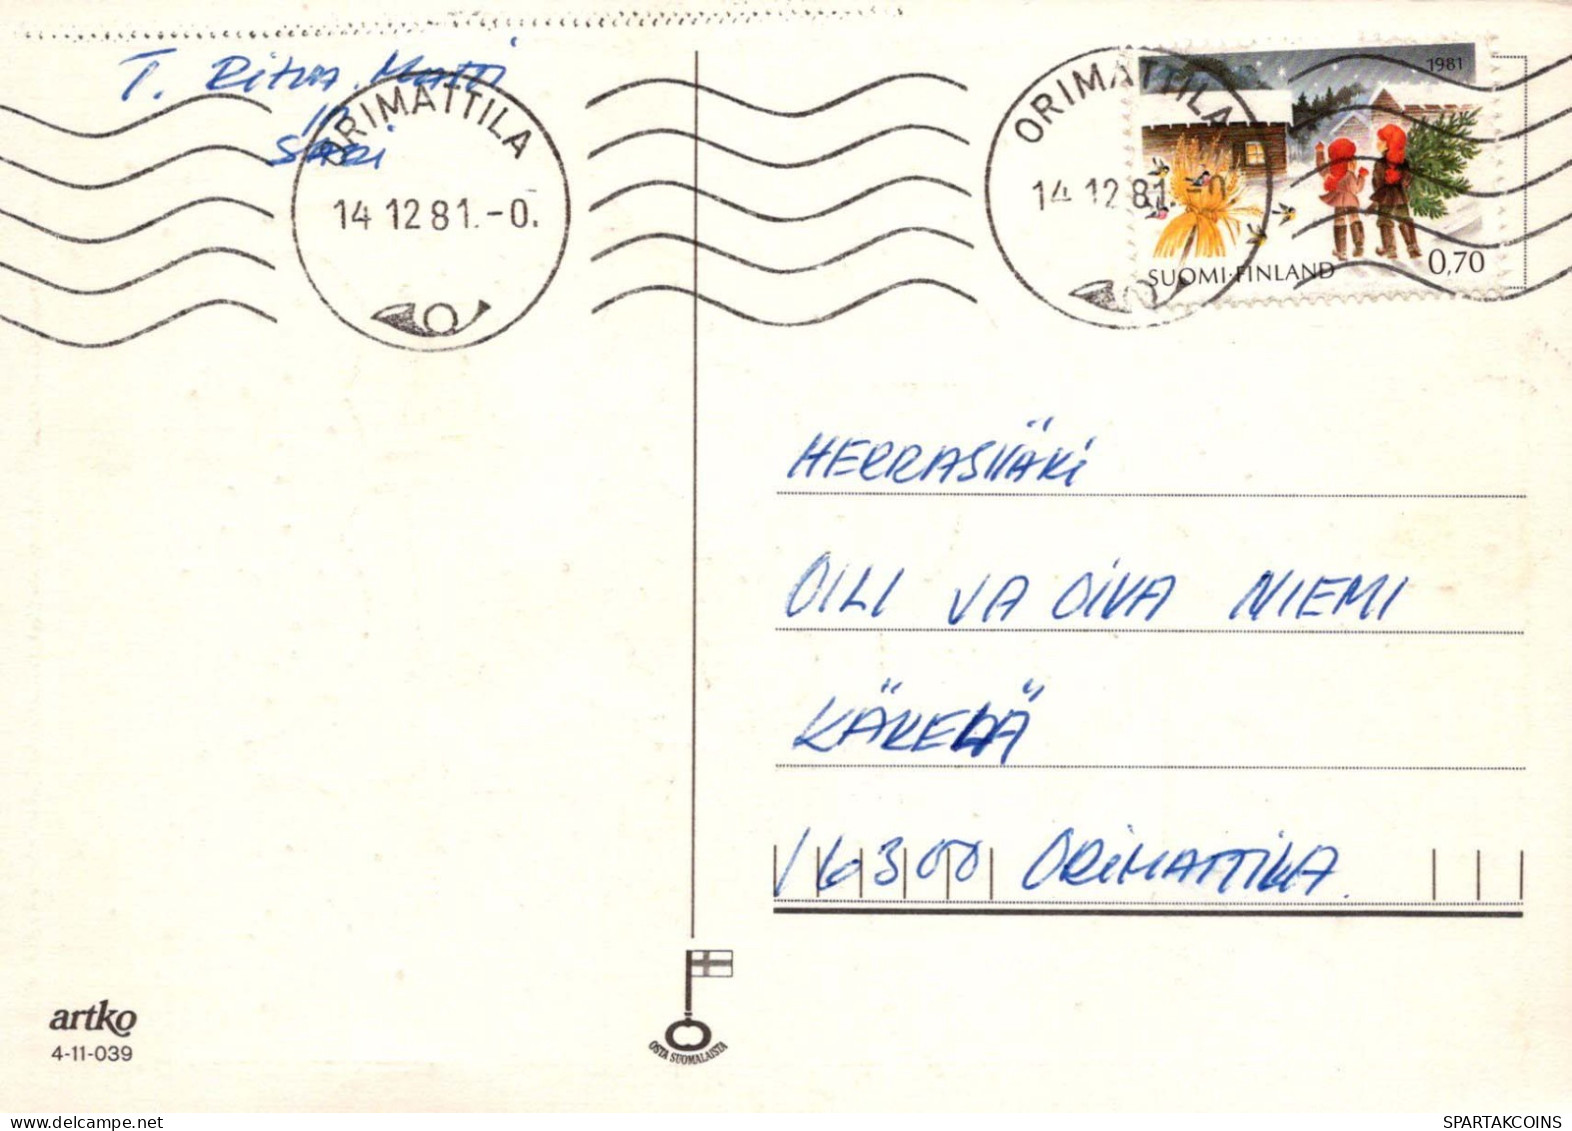 T. Ritva, Matti
ja
Sari
ORIMATTILA
14 12 81.-0.
ORIMATTILA
14 12 81.-0
1981
SUOMI·FINLAND
0,70
HERRASVÄKI
OILI JA OIVA NIEMI
KÄKELÄ
16300 ORIMATTILA.
artko
4-11-039
OSTA SUOMALAISTA
SPARTAKCOINS